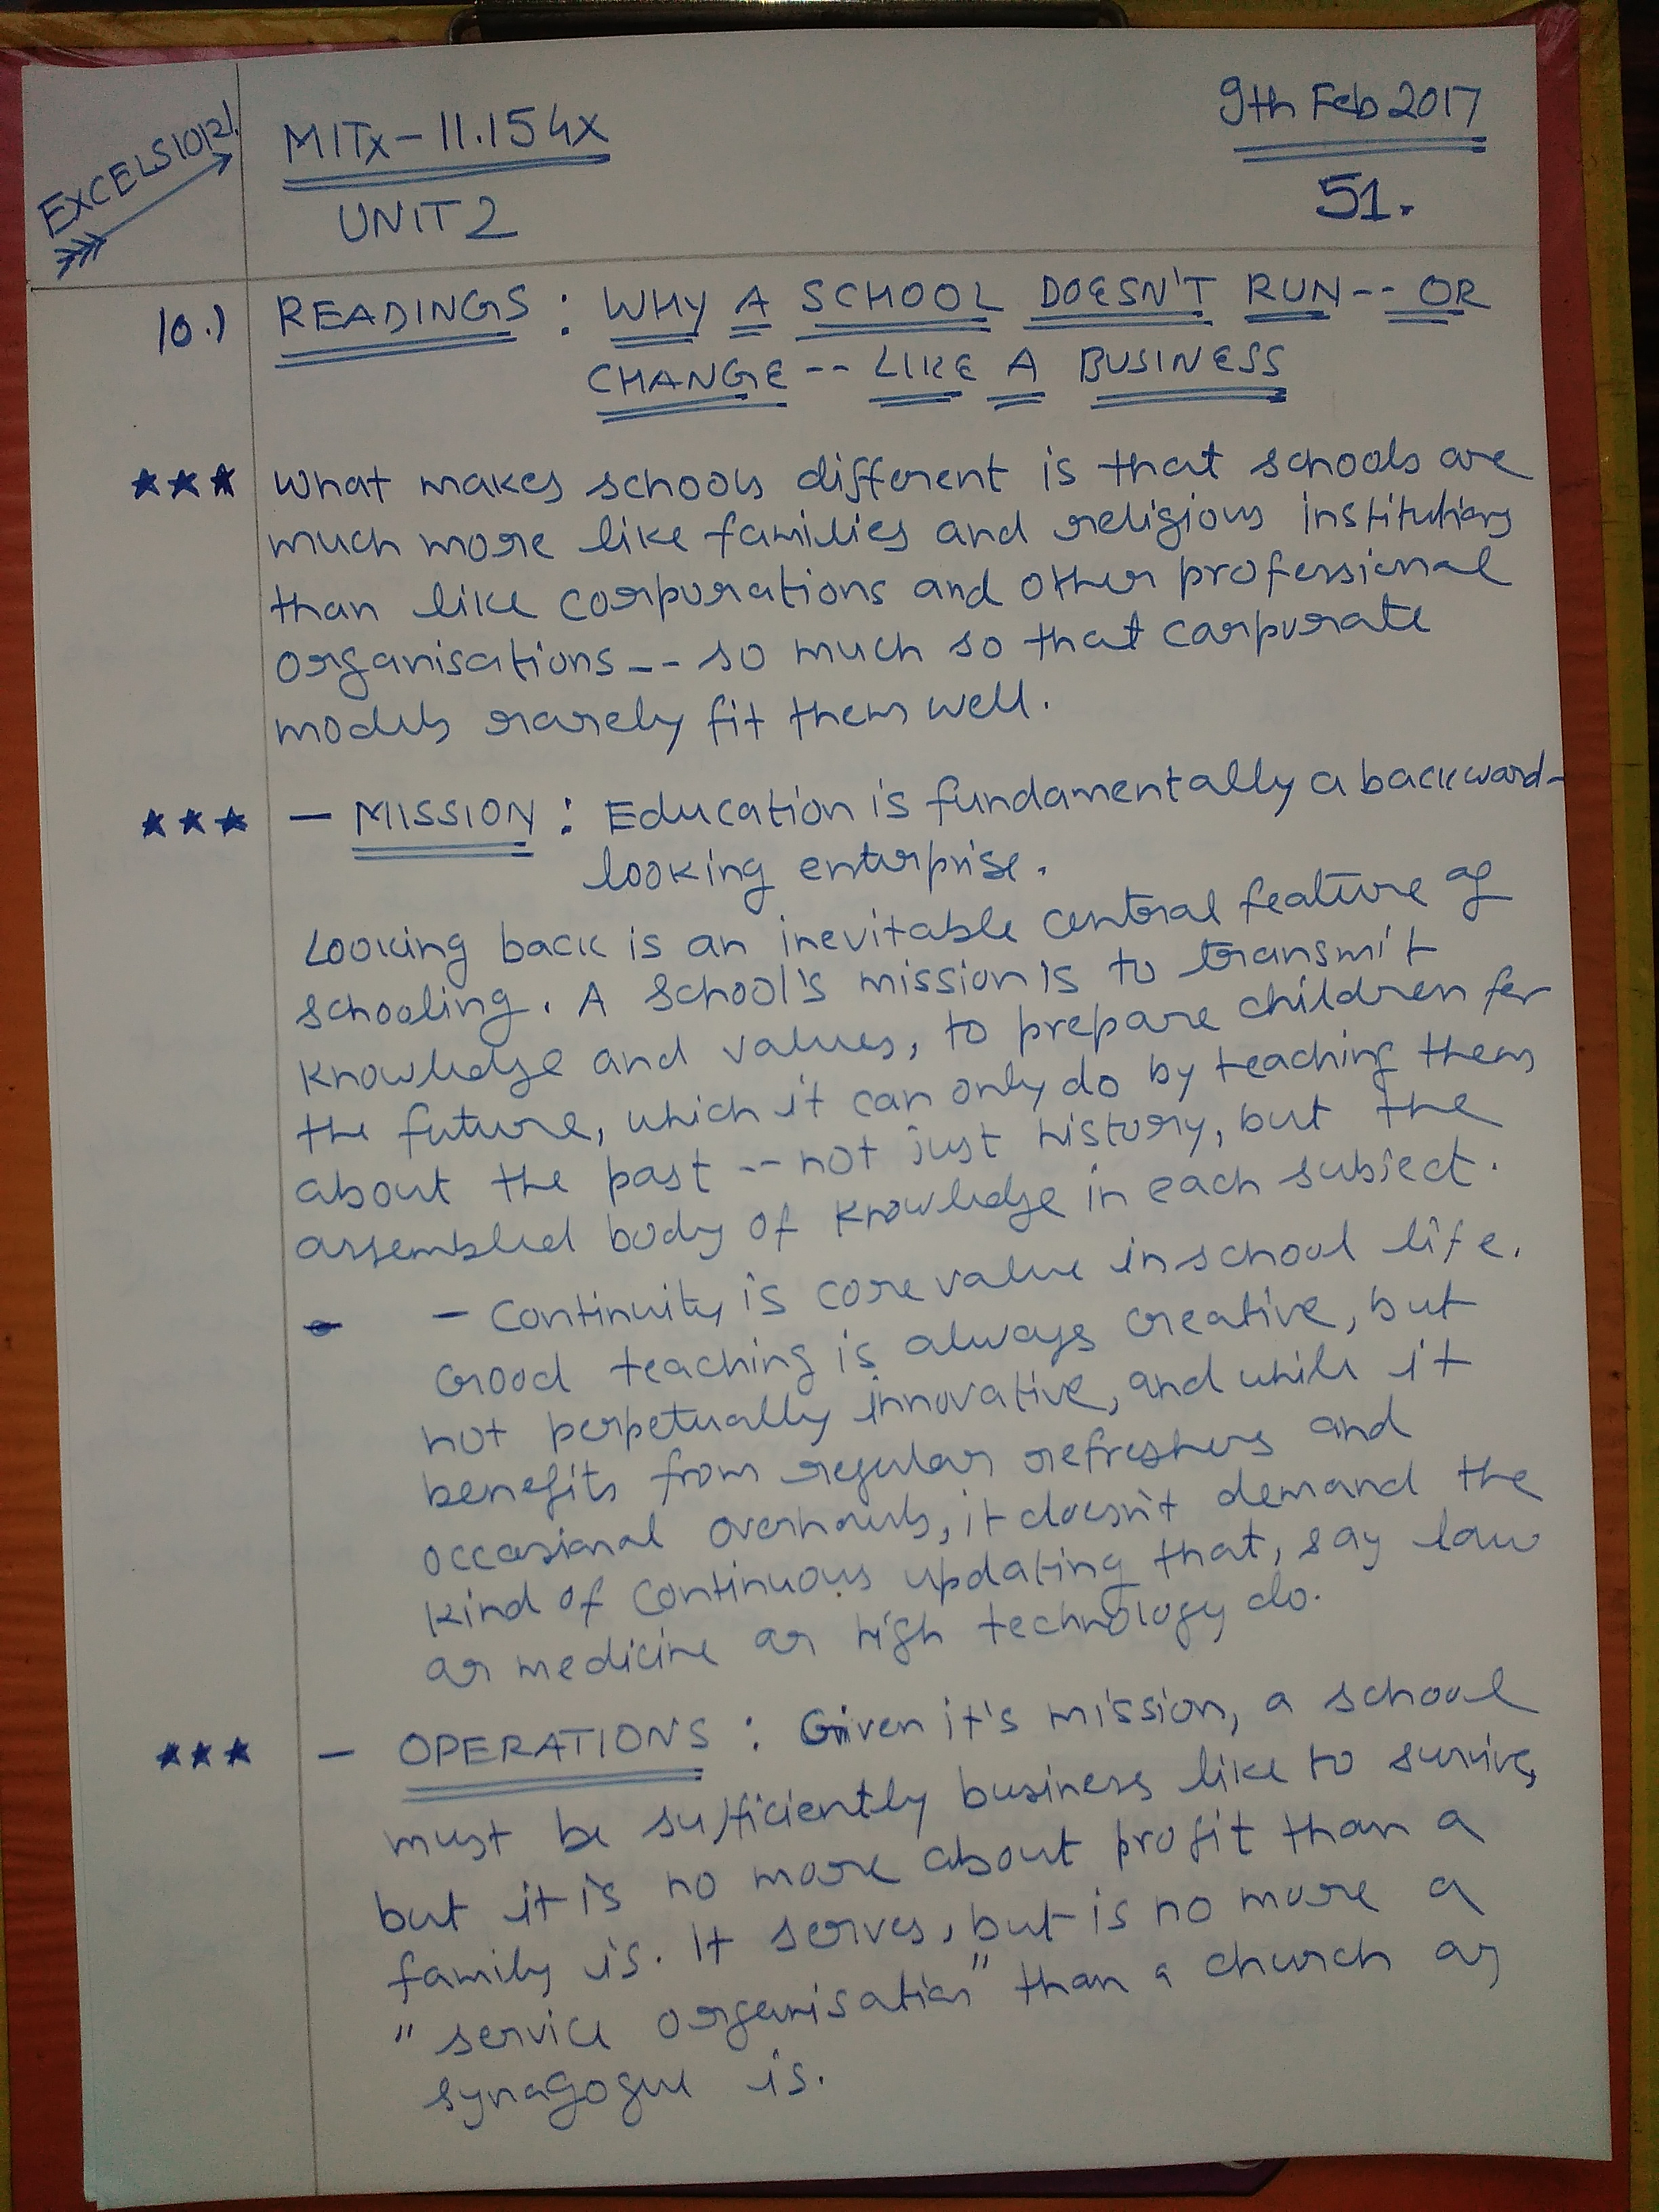 EXCELSIOR!
MITx-11.154x
9th Feb 2017
UNIT 2
51.
10.) READINGS : WHY A SCHOOL DOESN'T RUN-- OR
CHANGE -- LIKE A BUSINESS
*** What makes schools different is that schools are
much more like families and religious institutions
than like corporations and other professional
organisations -- so much so that corporate
models rarely fit them well.
*** - MISSION : Education is fundamentally a backward-
looking enterprise.
Looking back is an inevitable central feature of
schooling. A school's mission is to transmit
knowledge and values, to prepare children for
the future, which it can only do by teaching them
about the past -- not just history, but the
assembled body of knowledge in each subject.
- Continuity is core value in school life.
Good teaching is always creative, but
not perpetually innovative, and while it
benefits from regular refreshers and
occasional overhauls, it doesn't demand the
kind of continuous updating that, say law
or medicine or high technology do.
*** - OPERATIONS : Given it's mission, a school
must be sufficiently business like to survive,
but it is no more about profit than a
family is. It serves, but is no more a
"service organisation" than a church or
synagogue is.